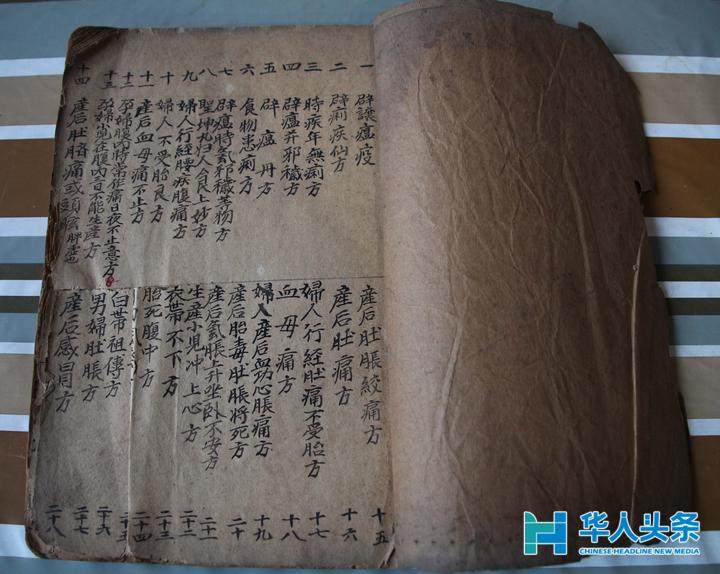 一 辟讓瘟疫
二 辟痢疾仙方
三 時疾年無痢方
四 辟瘟并邪穢方
五 辟瘟丹方
六 食物患痢方
七 辟瘟時氣邪穢苦物方
八 聖坤丸归人合良上妙方
九 婦人行經腰疾腹痛方
十 婦人不受胎良方
十一 產后血母痛不止方
十二 孕婦腹內時常作痛日夜不止意方
十三 孕婦在腹內不能生產方
十四 產后肚痛或頭眩
產后肚脹絞痛方 十五
產后肚痛方 十六
婦人行經肚痛不受胎方 十七
血母痛方 十八
婦人產后血攻心脹痛方 十九
產后胎毒肚脹將死方 二十
產后氣脹上升坐卧不安方 二十一
生產小児冲上心方 二十二
衣带不下方 二十三
胎死腹中方 二十四
二十五
白带祖傳方 二十六
男婦肚脹方 二十七
產后感冒方 二十八
华人头条
CHINESE HEADLINE NEW MEDIA